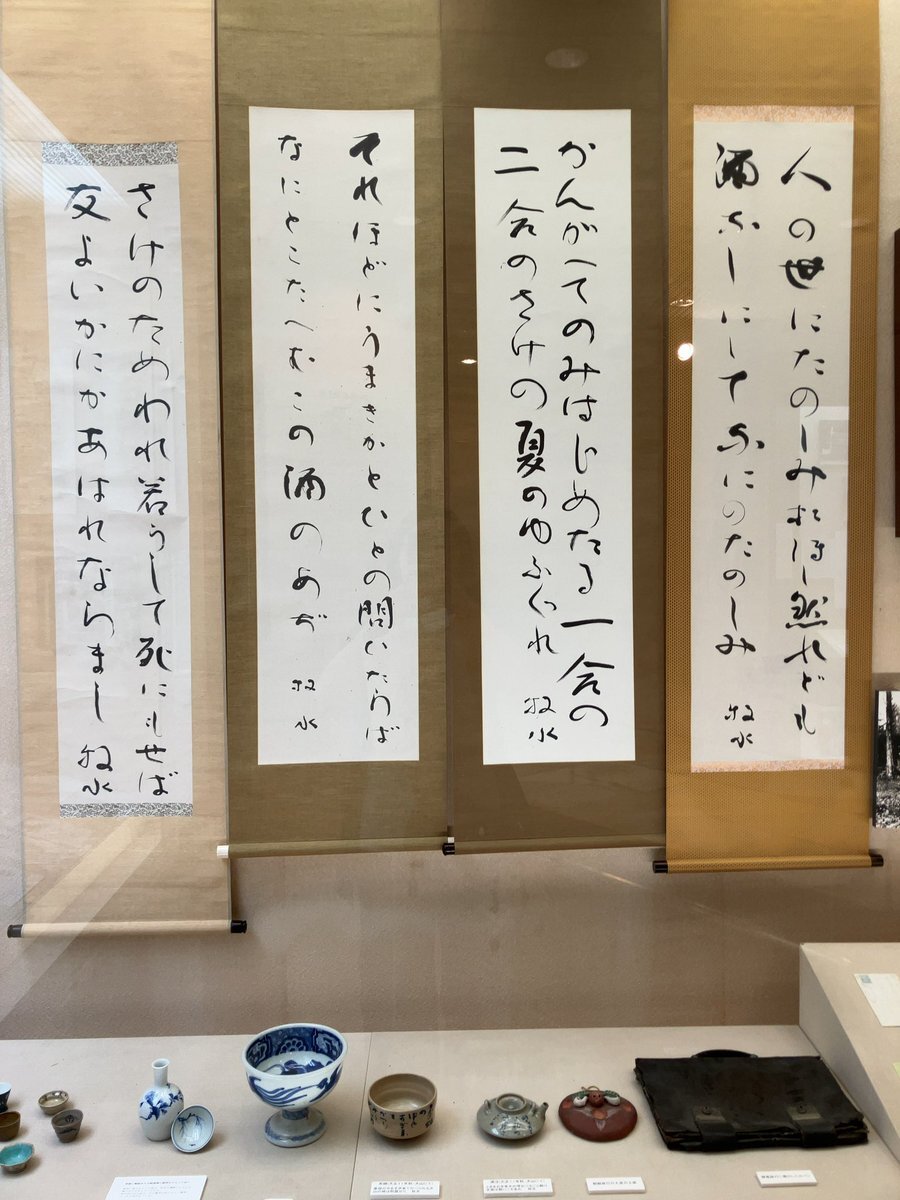 人の世にたのしみおほし然れども
酒なしにしてなにのたのしみ 牧水
かんがへてのみはじめたる一合の
二合のさけの夏のゆふぐれ 牧水
それほどにうまきかとひとの問いたらば
なにとこたへむこの酒のあぢ 牧水
さけのためわれ若うして死にもせば
友よいかにかあはれならまし 牧水